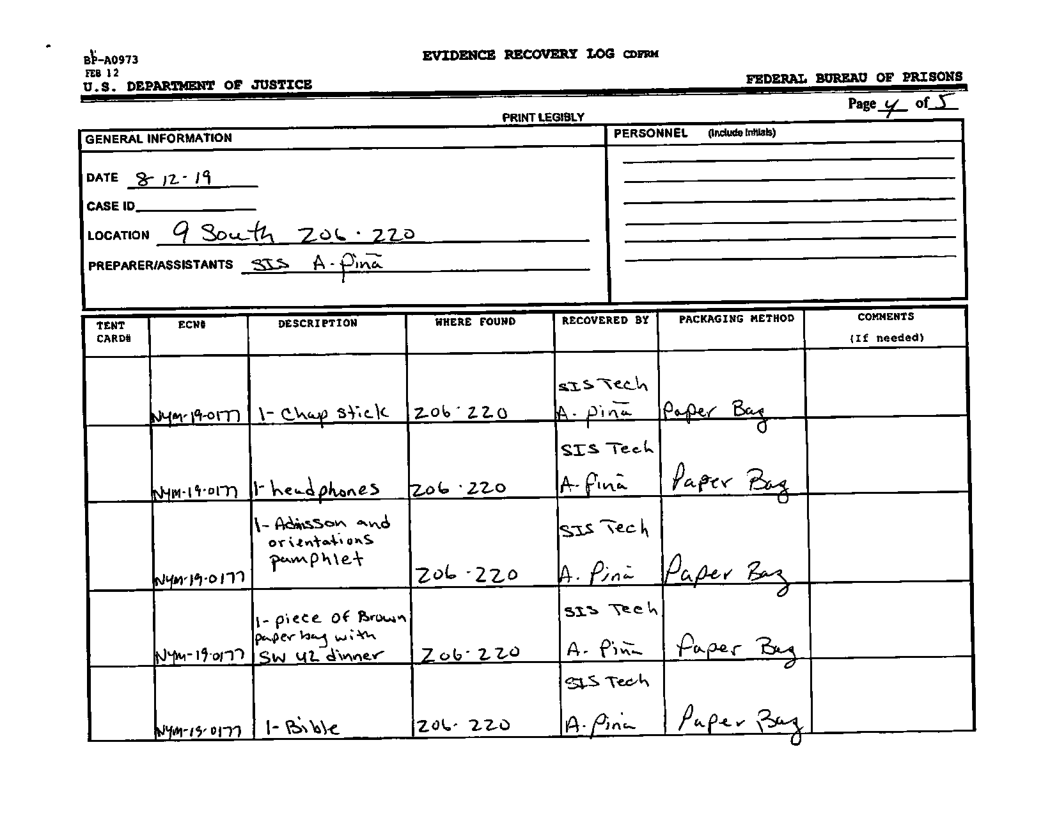 BP-A0973
FEB 12
EVIDENCE RECOVERY LOG CDFRM
U.S. DEPARTMENT OF JUSTICE
FEDERAL BUREAU OF PRISONS
Page 4 of 5
PRINT LEGIBLY
GENERAL INFORMATION
PERSONNEL (Include Initials)
DATE 8-12-19
CASE ID
LOCATION 9 South Z06-220
PREPARER/ASSISTANTS SIS A. Pina
TENT CARD# ECN# DESCRIPTION WHERE FOUND RECOVERED BY PACKAGING METHOD COMMENTS (If needed)
SIS Tech
NYM-19-0177 1- Chap stick Z06-220 A. Pina Paper Bag
SIS Tech
NYM-19-0177 1- headphones Z06-220 A. Pina Paper Bag
1- Admisson and
orientations
pamphlet
SIS Tech
NYM-19-0177 Z06-220 A. Pina Paper Bag
1- piece of Brown
paper bag with
SW 42 dinner
SIS Tech
NYM-19-0177 Z06-220 A. Pina Paper Bag
SIS Tech
NYM-19-0177 1- Bible Z06-220 A. Pina Paper Bag